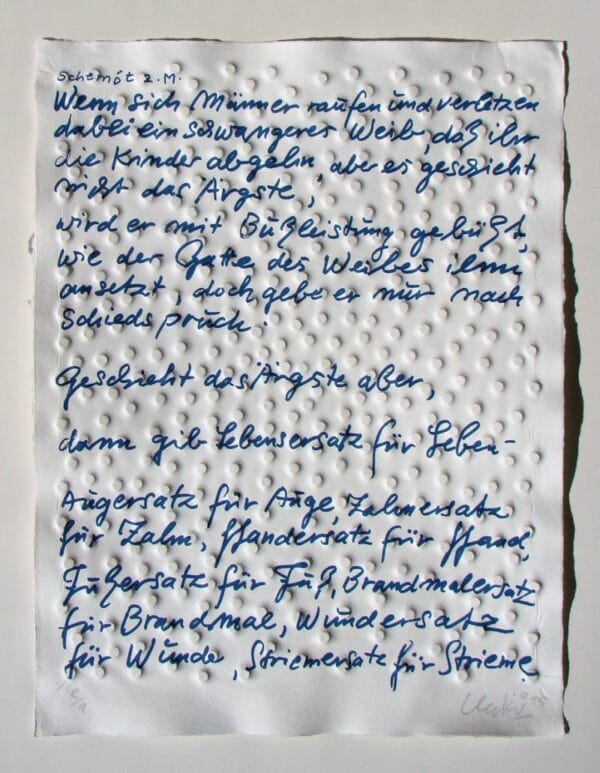 Schemót 2.M.
Wenn sich Männer raufen und verletzen
dabei ein schwangeres Weib, daß ihr
die Kinder abgehn, aber es geschieht
nicht das Ärgste,
wird er mit Bußleistung gebüßt,
wie der Gatte des Weibes ihm
ansetzt, doch gebe er nur nach
Schiedspruch.
Geschieht das Ärgste aber,
dann gib Lebensersatz für Leben-
Augersatz für Auge, Zahnersatz
für Zahn, Handersatz für Hand,
Fußersatz für Fuß, Brandmalersatz
für Brandmal, Wundersatz
für Wunde, Striemersatz für Strieme.
e/a